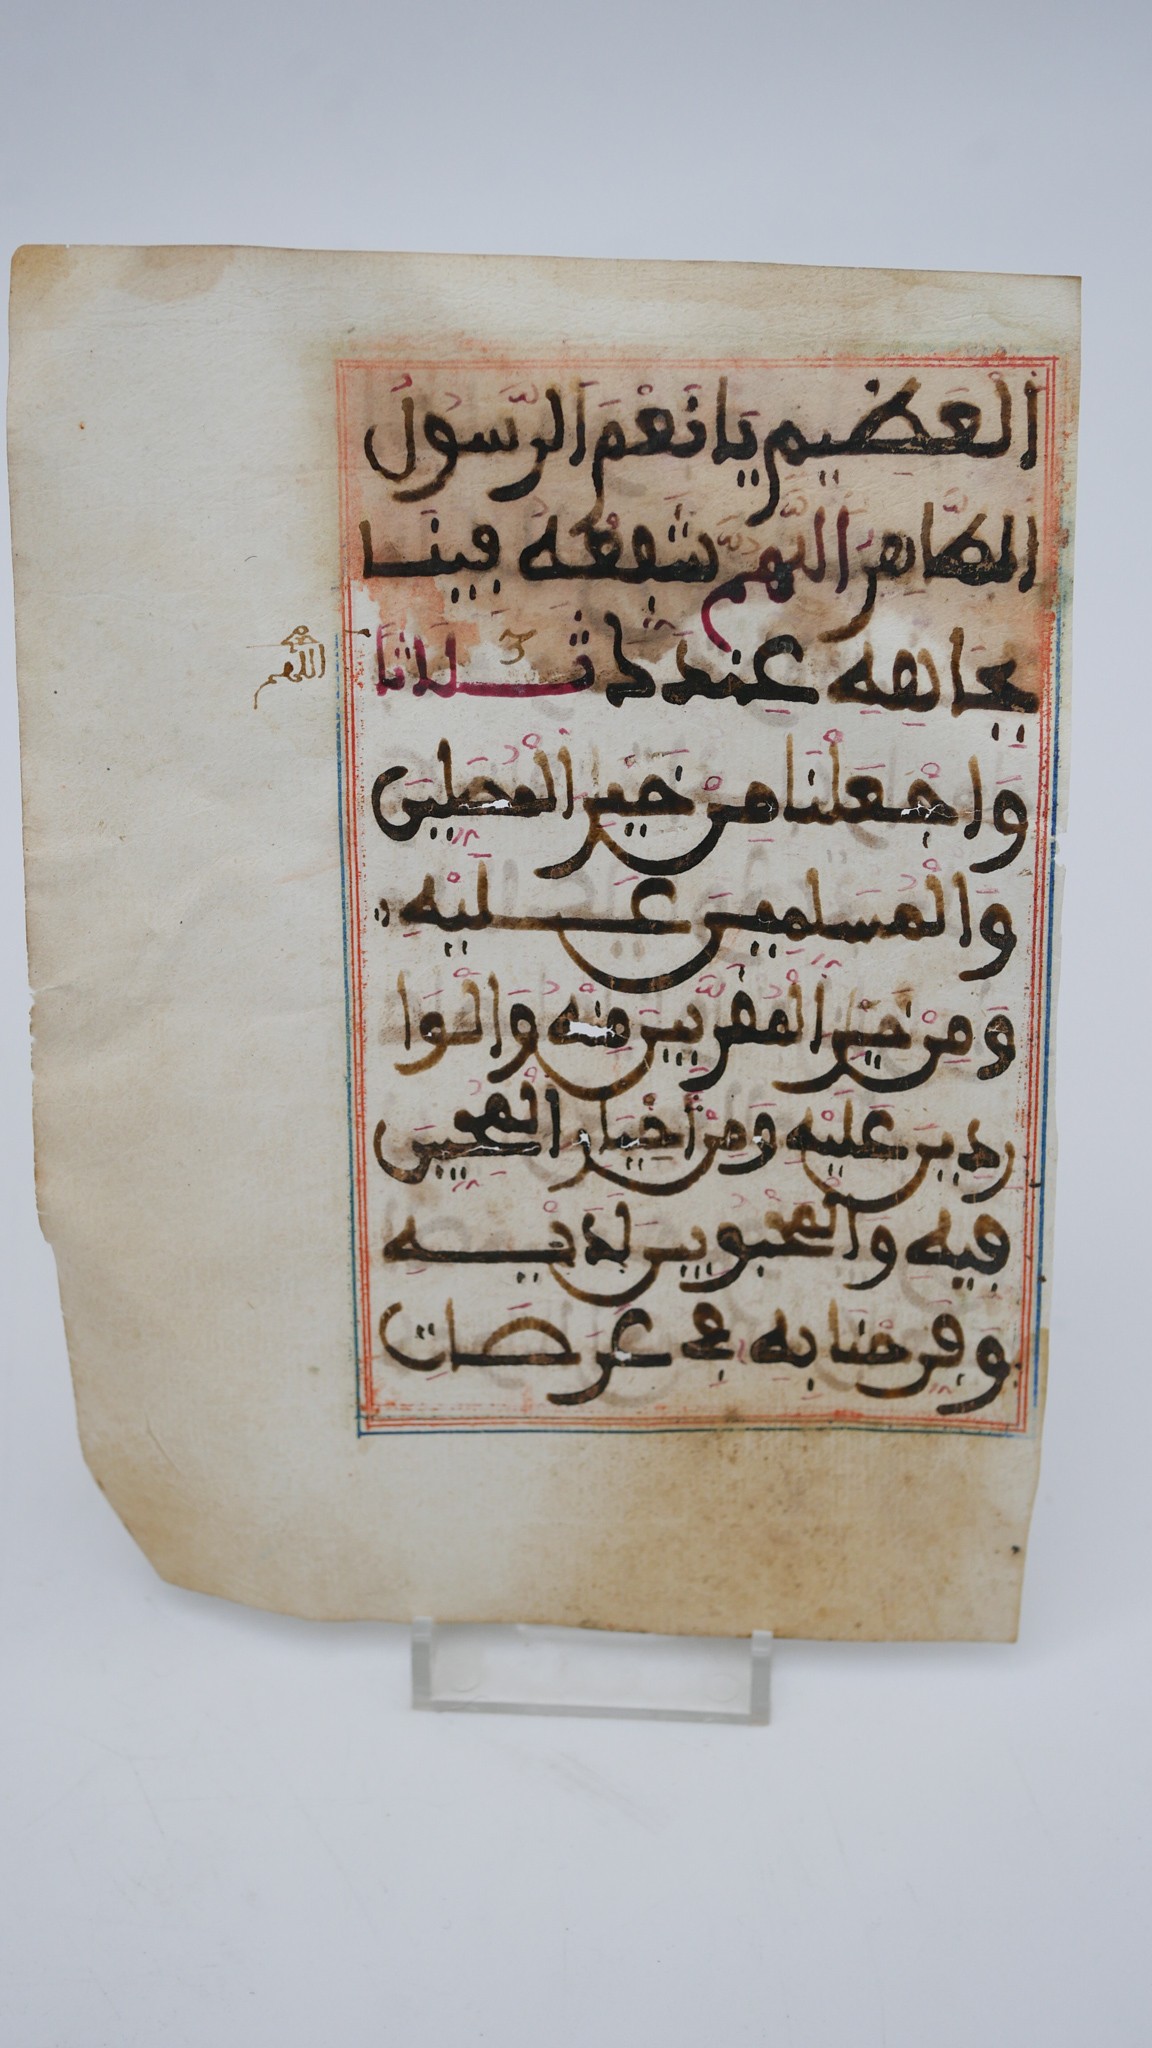 الْعَظِيمِ يَا نِعْمَ الرَّسُولُ
الطَّاهِرُ اللَّهُمَّ شَفِّعْهُ فِينَا
بِجَاهِهِ عِنْدَكَ ثَلَاثًا
اللهم
وَاجْعَلْنَا مِنْ خَيْرِ الْمُصَلِّينَ
وَالْمُسَلِّمِينَ عَلَيْهِ
وَمِنْ خَيْرِ الْمُقَرَّبِينَ مِنْهُ وَالْوَا
رِدِينَ عَلَيْهِ وَمِنْ أَخْيَارِ الْمُحِبِّينَ
فِيهِ وَالْمَحْبُوبِينَ لَدَيْهِ
وَفَرِّحْنَا بِهِ فِي عَرَصَاتِ